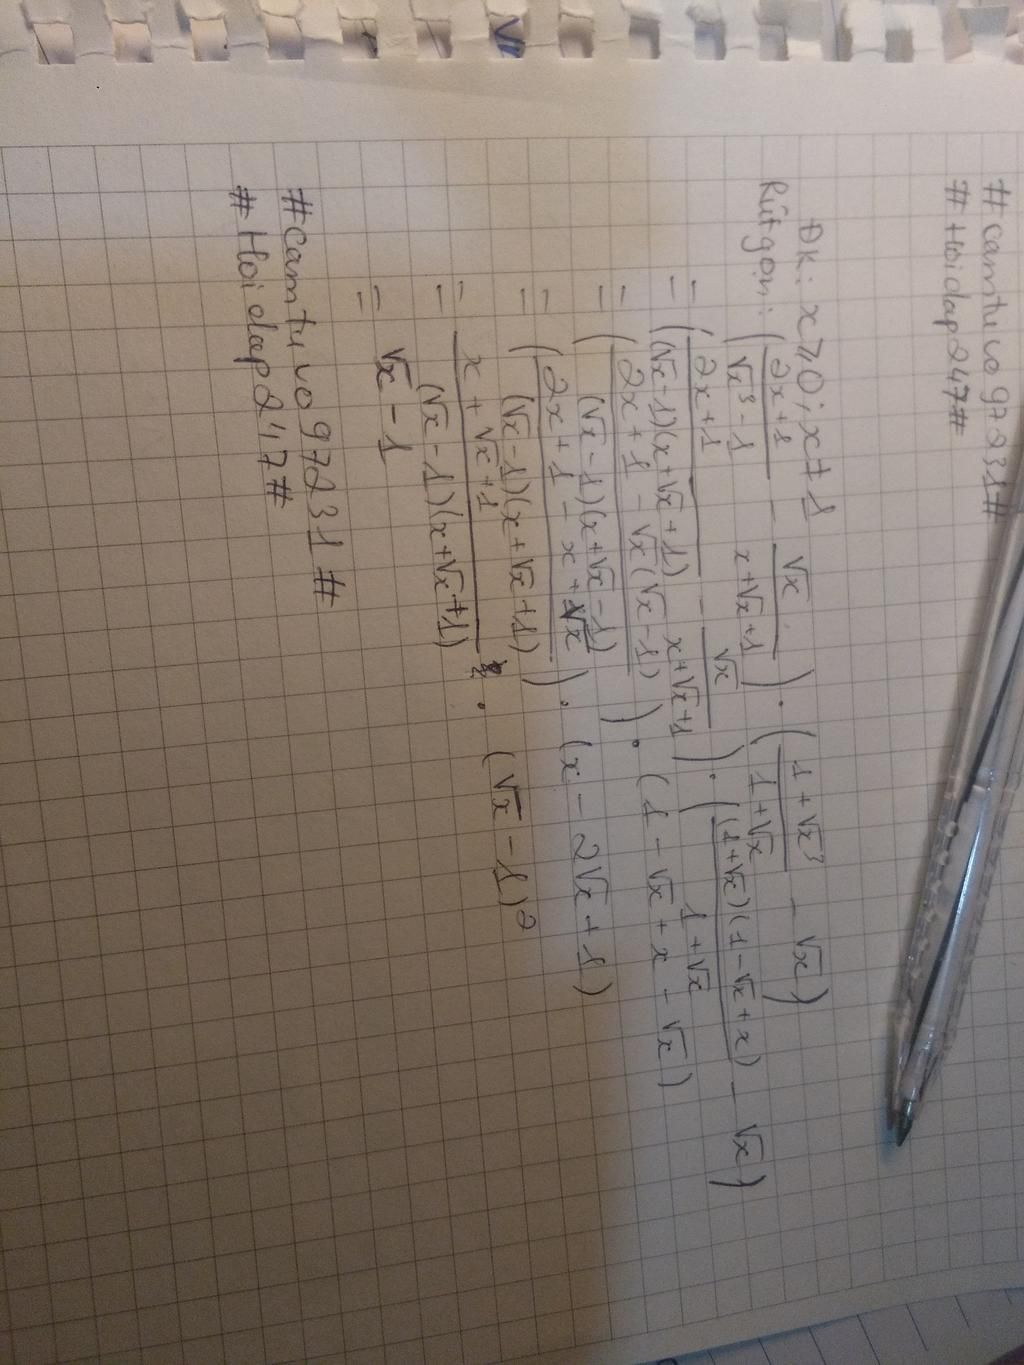 #camtuvo97231#
#Hoidap247#
ĐK: x ⩾ 0; x ≠ 1
Rút gọn: (2x+1 / √x³ - 1 - √x / x+√x+1) . (1+√x³ / 1+√x - √x)
= (2x+1 / (√x-1)(x+√x+1) - √x / x+√x+1) . ((1+√x)(1-√x+x) / 1+√x - √x)
= (2x+1-√x(√x-1) / (√x-1)(x+√x-1)) . (1-√x+x-√x)
= (2x+1-x+√x / (√x-1)(x+√x+1)) . (x-2√x+1)
= x+√x+1 / (√x-1)(x+√x+1) . (√x-1)²
= √x-1
#camtuvo97231#
#Hoidap247#